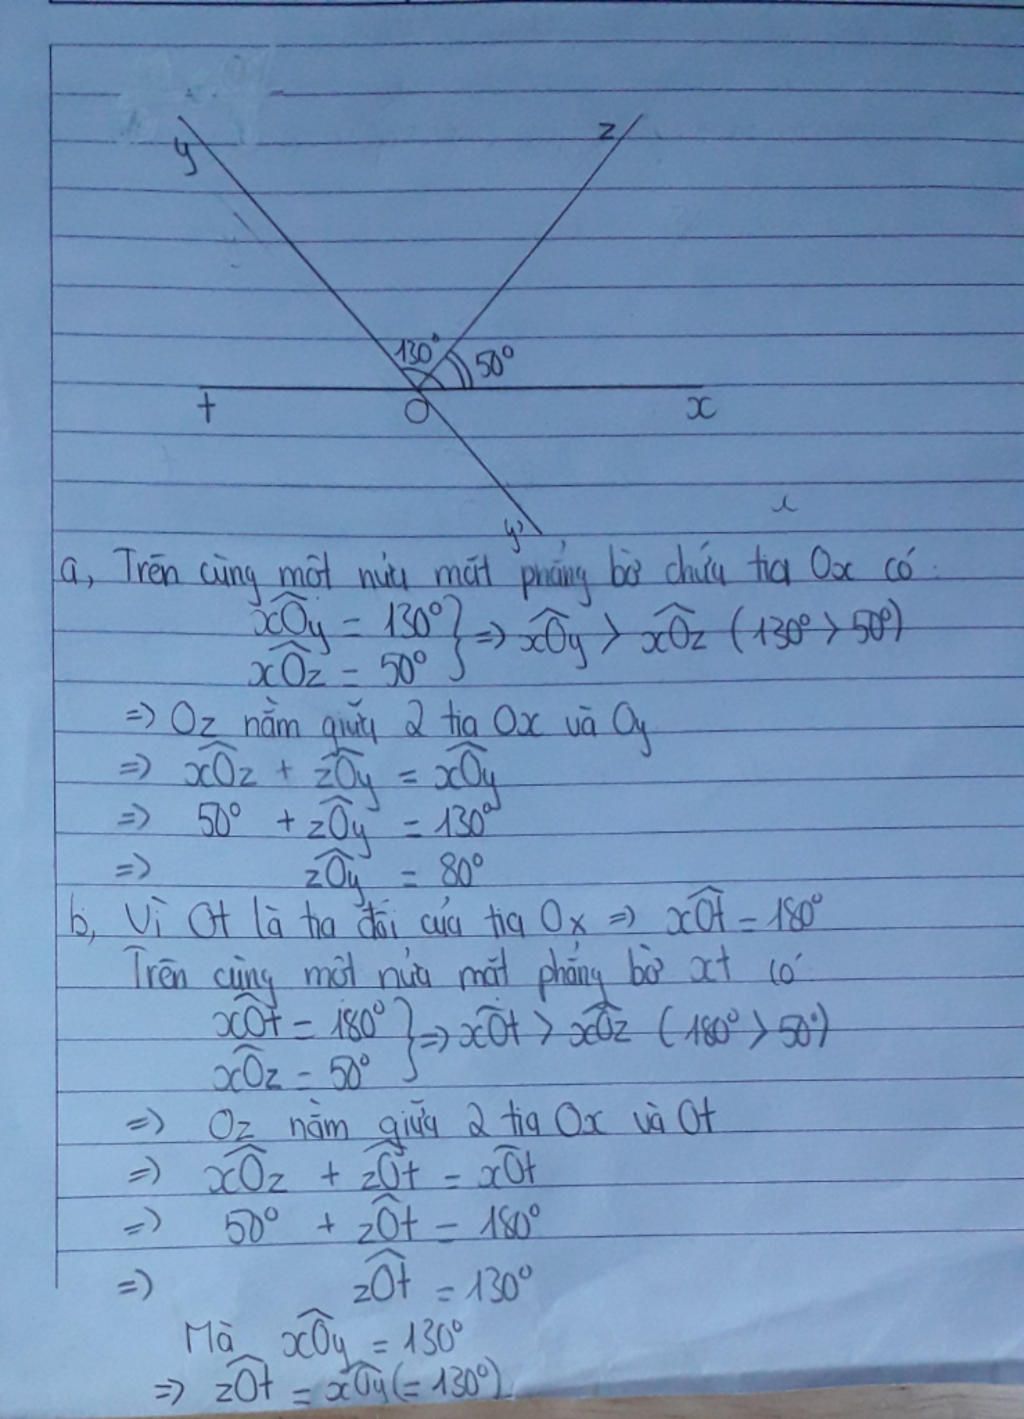 y
z
130°
50°
t
O
x
y'
a, Trên cùng một nửa mặt phẳng bờ chứa tia Ox có:
xÔy = 130°
xÔz = 50° } => xÔy > xÔz (130° > 50°)
=> Oz nằm giữa 2 tia Ox và Oy
=> xÔz + zÔy = xÔy
=> 50° + zÔy = 130°
=> zÔy = 80°
b, Vì Ot là tia đối của tia Ox => xÔt = 180°
Trên cùng một nửa mặt phẳng bờ xt có
xÔt = 180°
xÔz = 50° } => xÔt > xÔz (180° > 50°)
=> Oz nằm giữa 2 tia Ox và Ot
=> xÔz + zÔt = xÔt
=> 50° + zÔt = 180°
=> zÔt = 130°
Mà xÔy = 130°
=> zÔt = xÔy (= 130°)